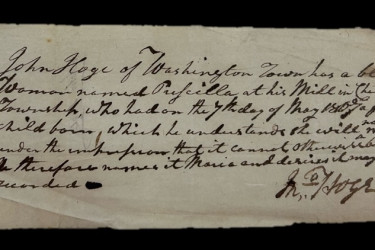 John Hoge of Washington Town has a bl
Woman named Priscilla, at his Mill in Che
Township, who had on the 7th day of May
child born, which he understands she will no
under the impression that it cannot otherwise
he therefore names it Maria and desires it may
recorded
Jno Hoge